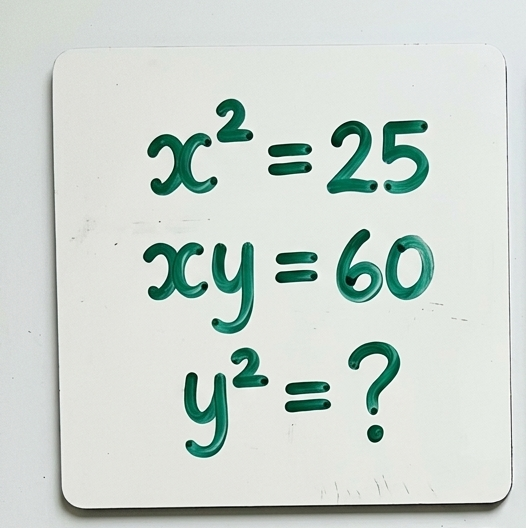 x² = 25
xy = 60
y² = ?